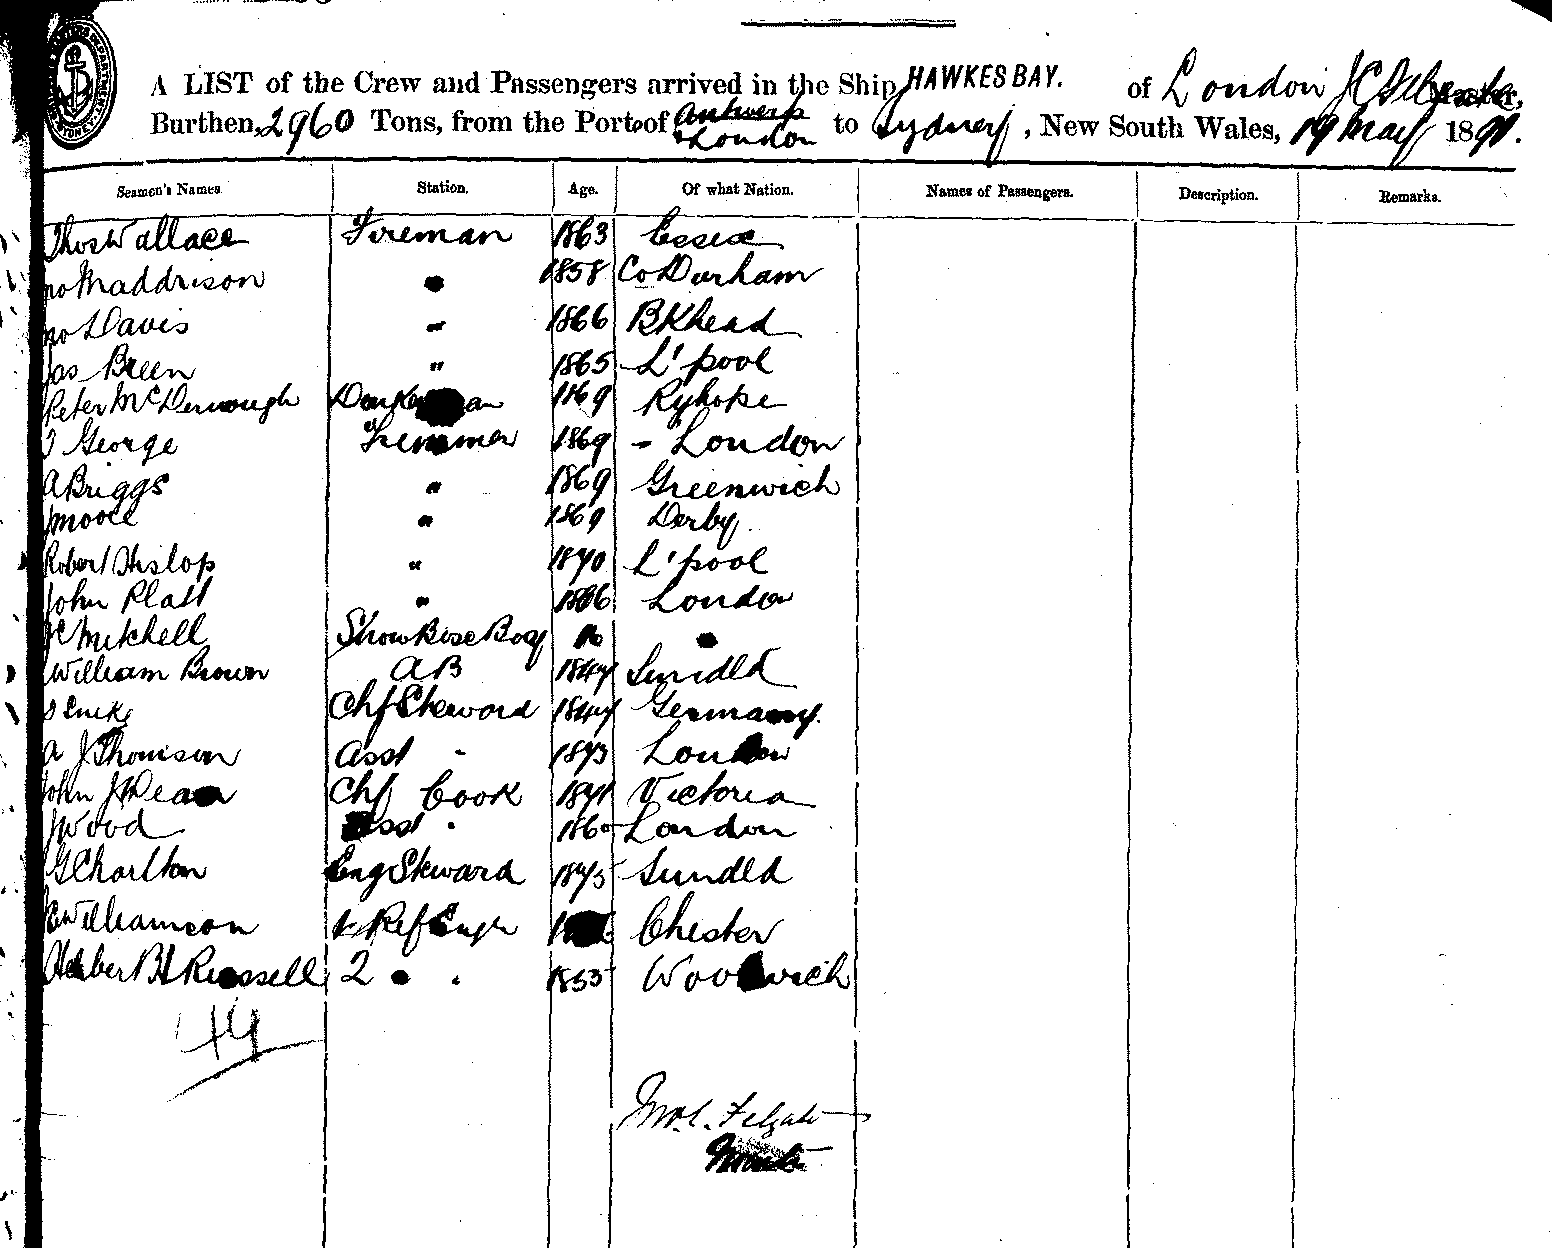 A LIST of the Crew and Passengers arrived in the Ship HAWKES BAY. of London
Burthen, 2960 Tons, from the Port of Antwerp & London to Sydney, New South Wales, 19 May 1891.
Seamen's Names. Station. Age. Of what Nation. Names of Passengers. Description. Remarks.
Thos Wallace Fireman 1863 Essex
no Maddrison " 1858 Co Durham
no Davis " 1866 BKhead
Jas Breen " 1865 L'pool
Peter McDernough Donkeyman 1869 Ryhope
T George Trimmer 1869 - London
A Briggs " 1869 Greenwich
J Moore " 1869 Derby
Robert Hislop " 1870 L'pool
John Platt " 1866 London
Mitchell
William Brown AB 1847 Sundld
Chf Steward 1847 Germany.
A J Thomson Asst " 1873 London
John Chf Cook Victoria
J Wood Asst " 1860 London
G Charlton Eng Steward 1875 Sundld
Williamson Ref Engr Chester
Russell 2 " " 1855 Woolwich
Jno. C. Felgate